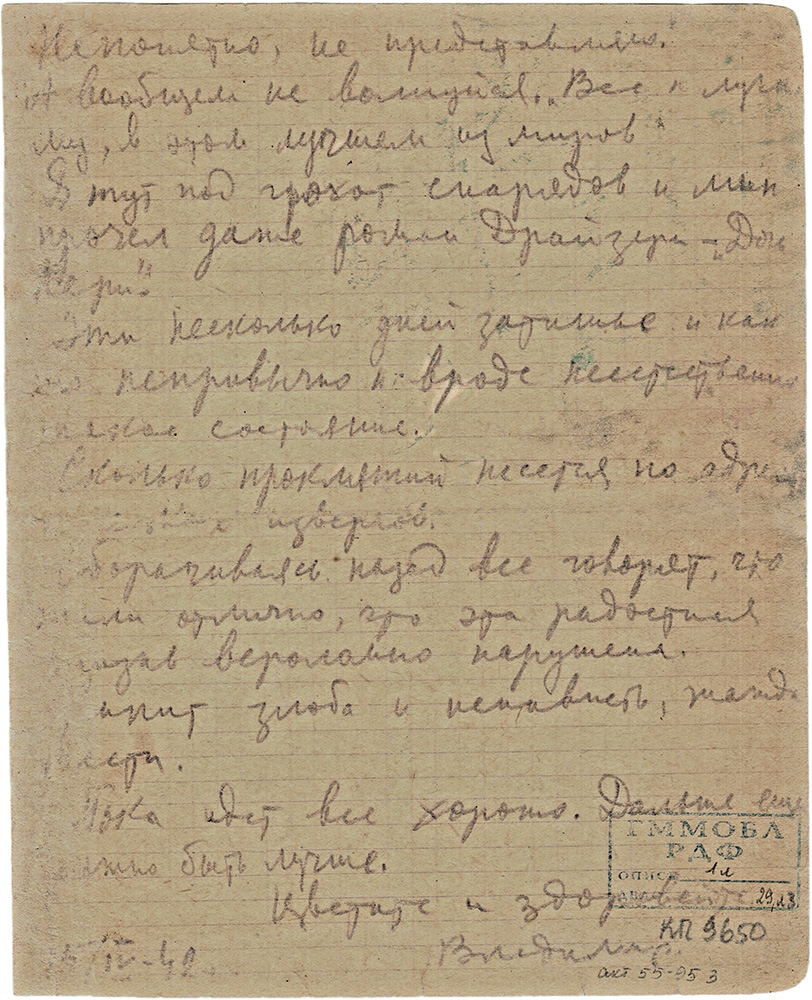 Непонятно, не представляю.
А вообщем не волнуйся. „Все к лучше
му, в этом лучшем из миров“
Я тут под грохот снарядов и мин
прочел даже роман Драйзера – „Дже
Кери“.
Эти несколько дней затишье и как
то непривычно и вроде неестественно
такое состояние.
Сколько проклятий несется по адре
извергов.
борачиваясь назад все говорят, что
жили отлично, что эта радостная
вероломно нарушена.
кипит злоба и ненависть, жажда
мести.
Пока идет все хорошо. Дальше еще
должно быть лучше.
Цветите и здоровейте.
IV-42 Владимир.
ГММОБЛ
РДФ
ОПИСЬ 1л
29,13
КП 9650
акт 55-95 з